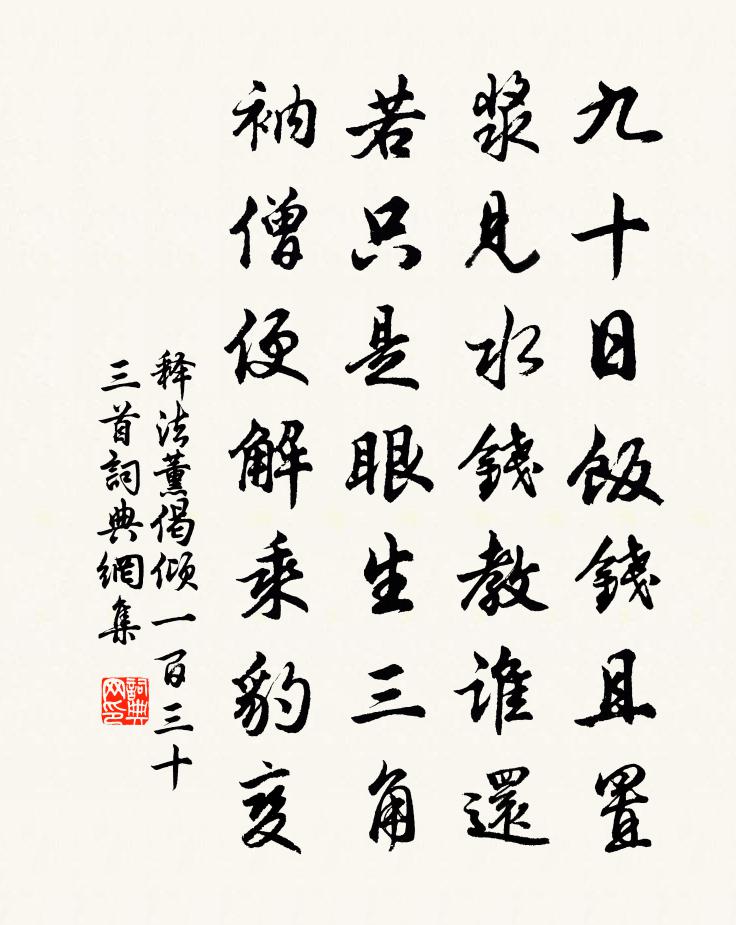 九十日飯錢且置
漿見水錢教誰還
若只是眼生三角
衲僧便解乘豹變
释法薰偈倾一百三十
三首詞典網集
詞典网印